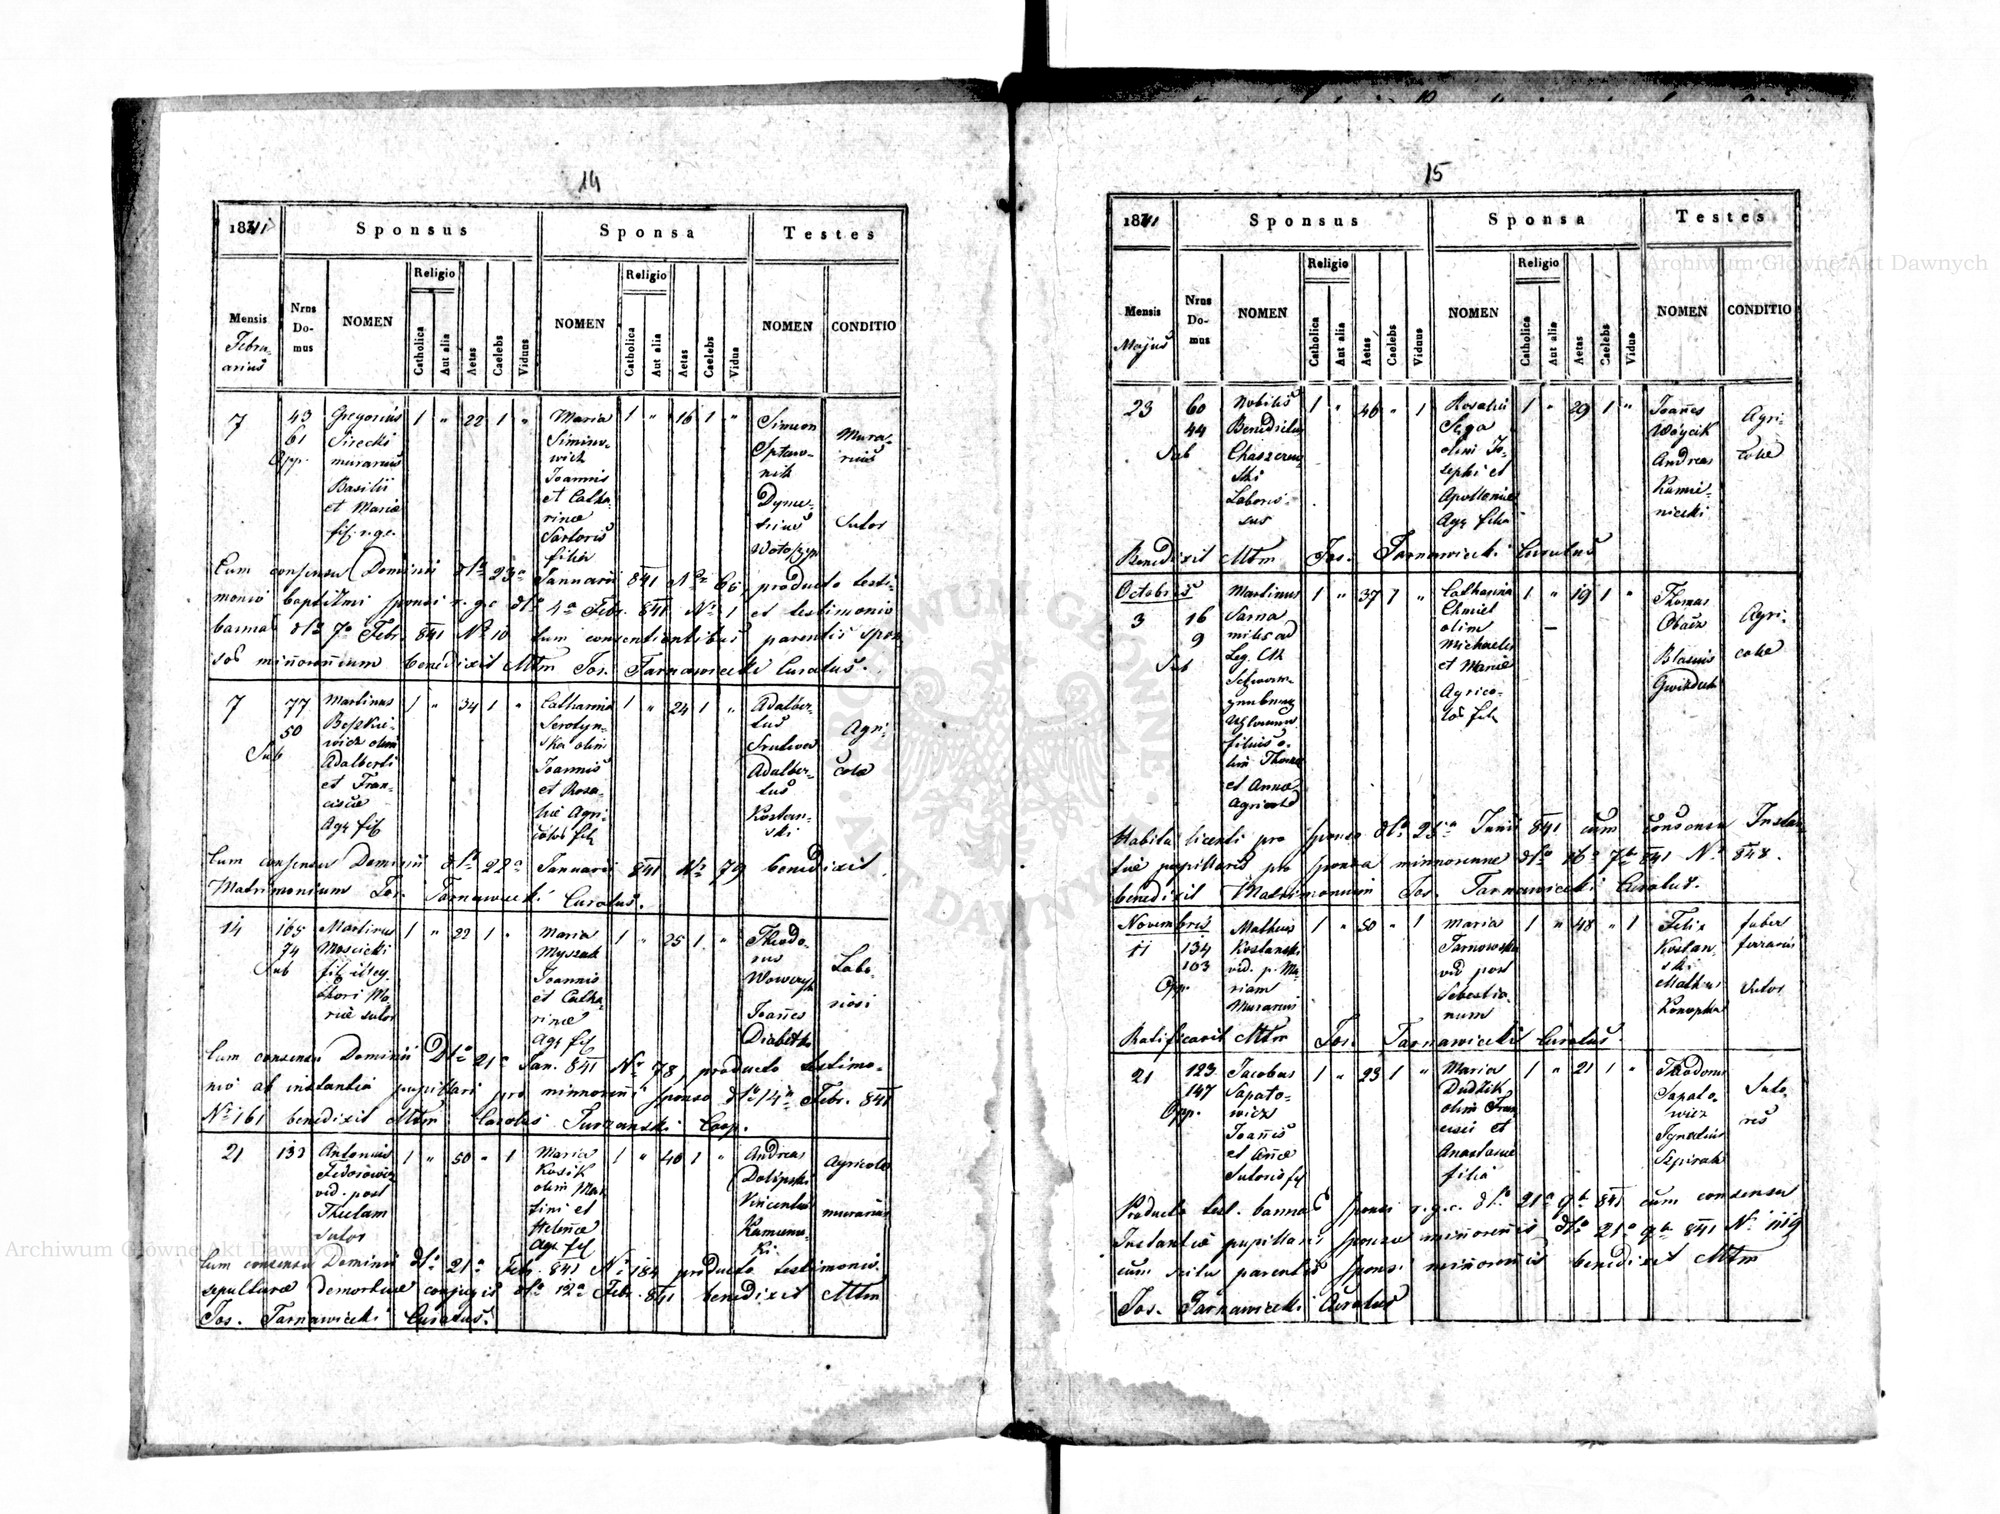 14
1841
Sponsus
Sponsa
Testes
Mensis
Febru-
arius
Nrus
Do-
mus
NOMEN
Religio
Catholica
Aut alia
Aetas
Caelebs
Viduus
NOMEN
Religio
Catholica
Aut alia
Aetas
Caelebs
Vidua
NOMEN
CONDITIO
7
43
61
Opp.
Gregorius
Sirecki
murarius
Basilii
et Mariae
fil. r. g. c.
1 " 22 1 "
Maria
Siminо-
wich
Joannis
et Catha-
rinae
Sartoris
filia
1 " 16 1 "
Simeon
Dyme-
trius
Mura-
rius
Sutor
Cum consensu Dominii dto 23a Januarii 841 No 65, producto testi-
monio baptismi sponsi r. g. c. dto 4a Febr. 841 No 1 et testimonio
bannal dto 7a Febr. 841 No 10 cum consentientibus parentis spon
benedixit Mtm Jos. Tarnawiecki Curatus.
7
77
50
Sub
Martinus
olim
Adalberti
et Fran-
ciscae
Agr. fil
1 " 34 1 "
Catharina
Serotyn-
ska olim
Joannis
et Rosa-
liae Agri-
colae fil
1 " 24 1 "
Adalber-
tus
Adalber-
tus
Kostan-
ski
Agri-
colae
Cum consensu Dominii dto 22a Januarii 841 No 79 benedixit
Matrimonium Jos. Tarnawiecki Curatus.
14
165
74
Sub
Martinus
Moscicki
fil. illeg.
thori Ma-
riae sutor
1 " 22 1 "
Maria
Myszak
Joannis
et Catha-
rinae
Agr. fil
1 " 25 1 "
Theodo-
rus
Joannes
Labo-
riosi
Cum consensu Dominii Dto 21a Jan. 841 No 78, producto testimo-
nio ab instantia pupillari pro minnorenni sponso dto 14a Febr. 841
No 161 benedixit Mtm Carolus Turzanski Coop.
21
Antonius
Fedorowicz
vid. post
Theclam
Sutor
1 " 50 " 1
Maria
Kusik
olim Mar
tini et
Helenae
Agr. fil
1 " 40 1 "
Andreas
Dolipski
Vincentius
Agricola
murarius
Cum consensu Dominii dto 21a Febr. 841 No 184 producto testimonio
sepulturae demortuae conjugis dto 12a Febr. 841 benedixit Mtm
Jos. Tarnawiecki Curatus.
15
1841
Sponsus
Sponsa
Testes
Mensis
Majus
Nrus
Do-
mus
NOMEN
Religio
Catholica
Aut alia
Aetas
Caelebs
Viduus
NOMEN
Religio
Catholica
Aut alia
Aetas
Caelebs
Vidua
NOMEN
CONDITIO
23
60
44
Sub
Nobilis
Benedictus
Laborio-
sus
1 " 46 " 1
Rosalia
olim Jo-
sephi et
Apolloniae
Agr. filia
1 " 29 1 "
Joannes
Wojcik
Andreas
Kamie-
niecki
Agri-
colae
Benedixit Mtm Jos. Tarnawiecki Curatus
Octobris
3
16
9
Sub
Martinus
Sarna
miles ad
Leg.
filius o-
lim Thomae
et Annae
Agricolae
1 " 37 1 "
Catharina
Chmiel
olim
Michaelis
et Mariae
Agrico-
lae fil
1 " 19 1 "
Thomas
Blasius
Agri-
colae
Habita licentia pro sponso dto 25a Junii 841 cum consensu Instan
tiae pupillaris pro sponsa minnorenne dto 16a 7b 841 No 848.
benedixit Matrimonium Jos. Tarnawiecki Curatus.
Novembris
11
134
103
Opp.
Matheus
Kostanski
vid. p. Ma-
riam
Murarius
1 " 50 " 1
Maria
Tarnowska
vid post
Sebastia
num
1 " 48 " 1
Felix
Kostan-
ski
Matheus
Konopka
faber
ferrarius
Sutor
Ratificavit Mtm Jos. Tarnawiecki Curatus.
21
123
147
Opp.
Jacobus
Sapato-
wicz
Joannis
et Annae
Sutoris fil
1 " 23 1 "
Maria
Dudzik
olim Fran
cisci et
Anastasiae
filia
1 " 21 1 "
Theodorus
Sapato-
wicz
Ignatius
Szpirak
Suto-
res
Producto test. bannal sponsi r. g. c. dto 21a 9b 841 cum consensu
Instantiae pupillari sponsae minorennis dto 21a 9b 841 No 1119
cum scitu parentis sponsi minorennis benedixit Mtm
Jos. Tarnawiecki Curatus
Archiwum Główne Akt Dawnych
Archiwum Główne Akt Dawnych
ARCHIWUM GŁÓWNE AKT DAWNYCH